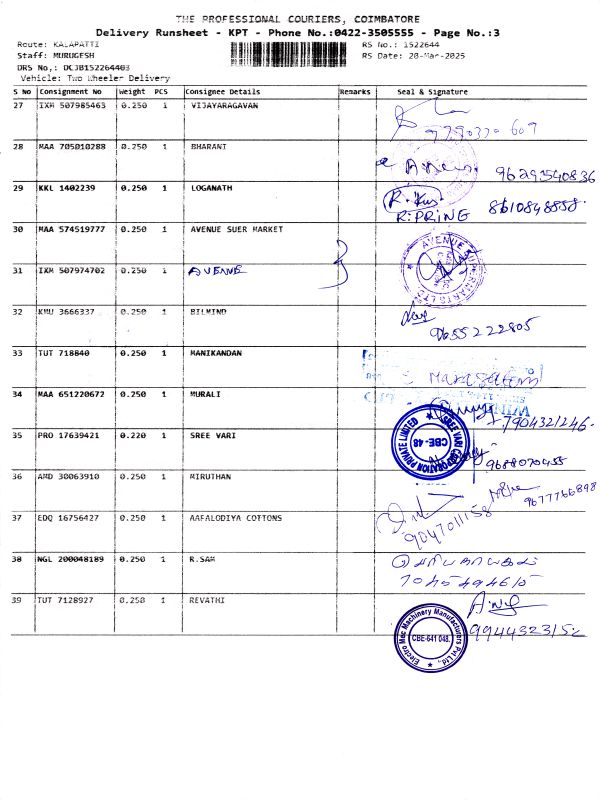 THE PROFESSIONAL COURIERS, COIMBATORE
Delivery Runsheet - KPT - Phone No.:0422-3505555 - Page No.:3
Route: KALAPATTI
RS No.: 1522644
Staff: MURUGESH
RS Date: 20-Mar-2025
DRS No.: DCJB152264403
Vehicle: Two Wheeler Delivery
S No Consignment No Weight PCS Consignee Details Remarks Seal & Signature
27 IXM 507985463 0.250 1 VIJAYARAGAVAN
28 MAA 705010288 0.250 1 BHARANI
9629540836
29 KKL 1402239 0.250 1 LOGANATH
R:PRING 8610848858.
30 MAA 574519777 0.250 1 AVENUE SUER MARKET
AVENUE SUPERMARTS LTD
31 IXM 507974702 0.250 1 AVENUE
32 KMU 3666337 0.250 1 BILMIND
9655222805
33 TUT 718840 0.250 1 MANIKANDAN
34 MAA 651220672 0.250 1 MURALI
7904321246.
35 PRO 17639421 0.220 1 SREE VARI
SREE VARI CORPORATION PRIVATE LIMITED
CBE-48
9688070455
36 AMD 30063910 0.250 1 MIRUTHAN
9677766898
37 EDQ 16756427 0.250 1 AAFALODIYA COTTONS
9047011158
38 NGL 200048189 0.250 1 R.SAM
39 TUT 7128927 0.250 1 REVATHI
Electro Mec Machinery Manufacturers Pvt Ltd.,
CBE-641 048.
9944323152